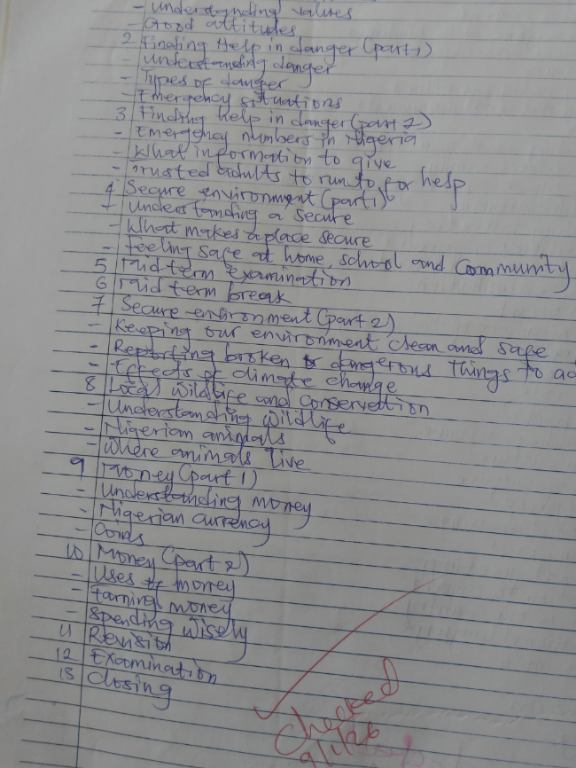 - Understanding values
- Good attitudes
2 Finding Help in danger (part 1)
- Understanding danger
- Types of danger
- Emergency situations
3 Finding help in danger (part 2)
- Emergency numbers in Nigeria
- What information to give
- Trusted adults to run to for help
4 Secure environment (part 1)
- Understanding a secure
- What makes a place secure
- Feeling safe at home, school and community
5 Mid term Examination
6 Mid term break
7 Secure environment (part 2)
- Keeping our environment clean and safe
- Reporting broken or dangerous things to ad
- Effects of climate change
8 Local wildlife and conservation
- Understanding wildlife
- Nigerian animals
- Where animals live
9 Money (part 1)
- Understanding money
- Nigerian currency
- Coins
10 Money (part 2)
- Uses of money
- Earning money
- Spending wisely
11 Revision
12 Examination
13 Closing
Checked
9/1/26